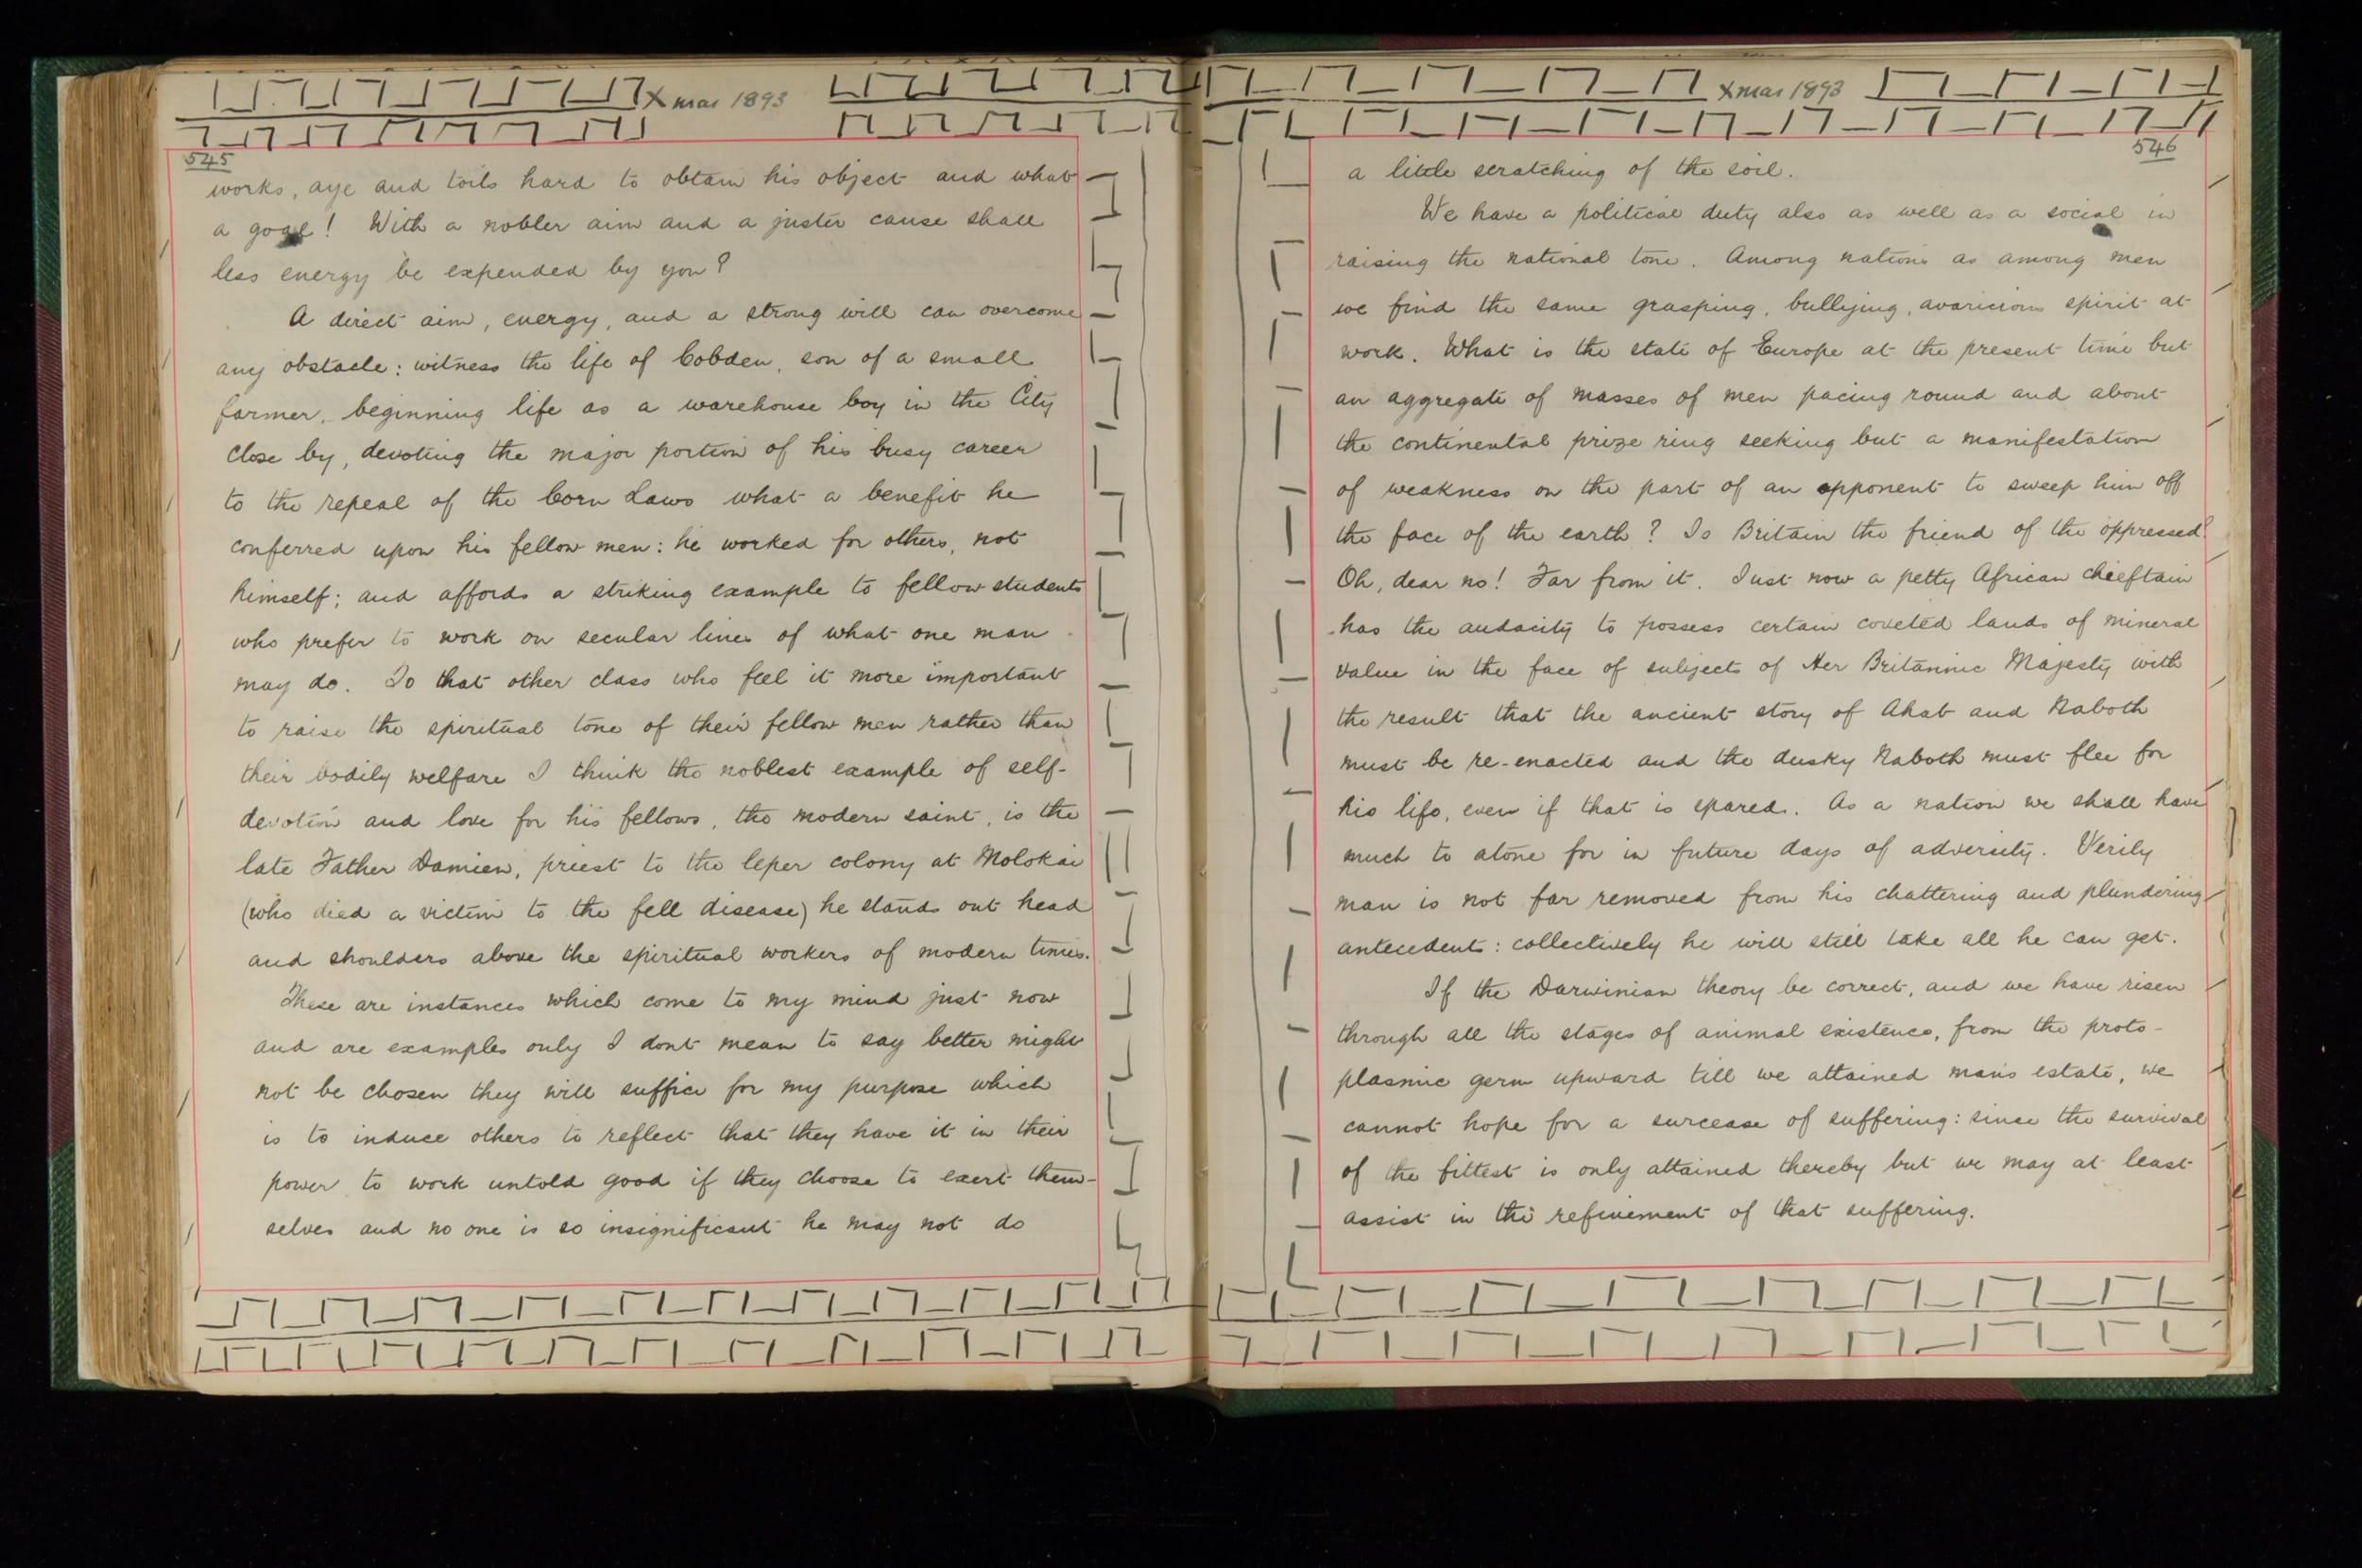 Xmas 1893
545
works, aye and toils hard to obtain his object and what
a goal! With a nobler aim and a juster cause shall
less energy be expended by you?
A direct aim, energy, and a strong will can overcome
any obstacle: witness the life of Cobden, son of a small
farmer, beginning life as a warehouse boy in the City
close by, devoting the major portion of his busy career
to the repeal of the Corn Laws what a benefit he
conferred upon his fellow men: he worked for others, not
himself; and affords a striking example to fellow students
who prefer to work on secular lines of what one man
may do. To that other class who feel it more important
to raise the spiritual tone of their fellow men rather than
their bodily welfare I think the noblest example of self-
devotion and love for his fellows, the modern saint, is the
late Father Damien, priest to the leper colony at Molokai
(who died a victim to the fell disease) he stands out head
and shoulders above the spiritual workers of modern times.
These are instances which come to my mind just now
and are examples only I dont mean to say better might
not be chosen they will suffice for my purpose which
is to induce others to reflect that they have it in their
power to work untold good if they choose to exert them-
selves and no one is so insignificant he may not do
Xmas 1893
546
a little scratching of the soil.
We have a political duty also as well as a social in
raising the national tone. Among nations as among men
we find the same grasping, bullying, avaricious spirit at
work. What is the state of Europe at the present time but
an aggregate of masses of men pacing round and about
the continental prize ring seeking but a manifestation
of weakness on the part of an opponent to sweep him off
the face of the earth? Is Britain the friend of the oppressed?
Oh, dear no! Far from it. Just now a petty African chieftain
has the audacity to possess certain coveted lands of mineral
value in the face of subjects of Her Britannic Majesty with
the result that the ancient story of Ahab and Naboth
must be re-enacted and the dusky Naboth must flee for
his life, even if that is spared. As a nation we shall have
much to atone for in future days of adversity. Verily
man is not far removed from his chattering and plundering
antecedents: collectively he will still take all he can get.
If the Darwinian theory be correct, and we have risen
through all the stages of animal existence, from the proto-
plasmic germ upward till we attained man's estate, we
cannot hope for a surcease of suffering: since the survival
of the fittest is only attained thereby but we may at least
assist in the refinement of that suffering.